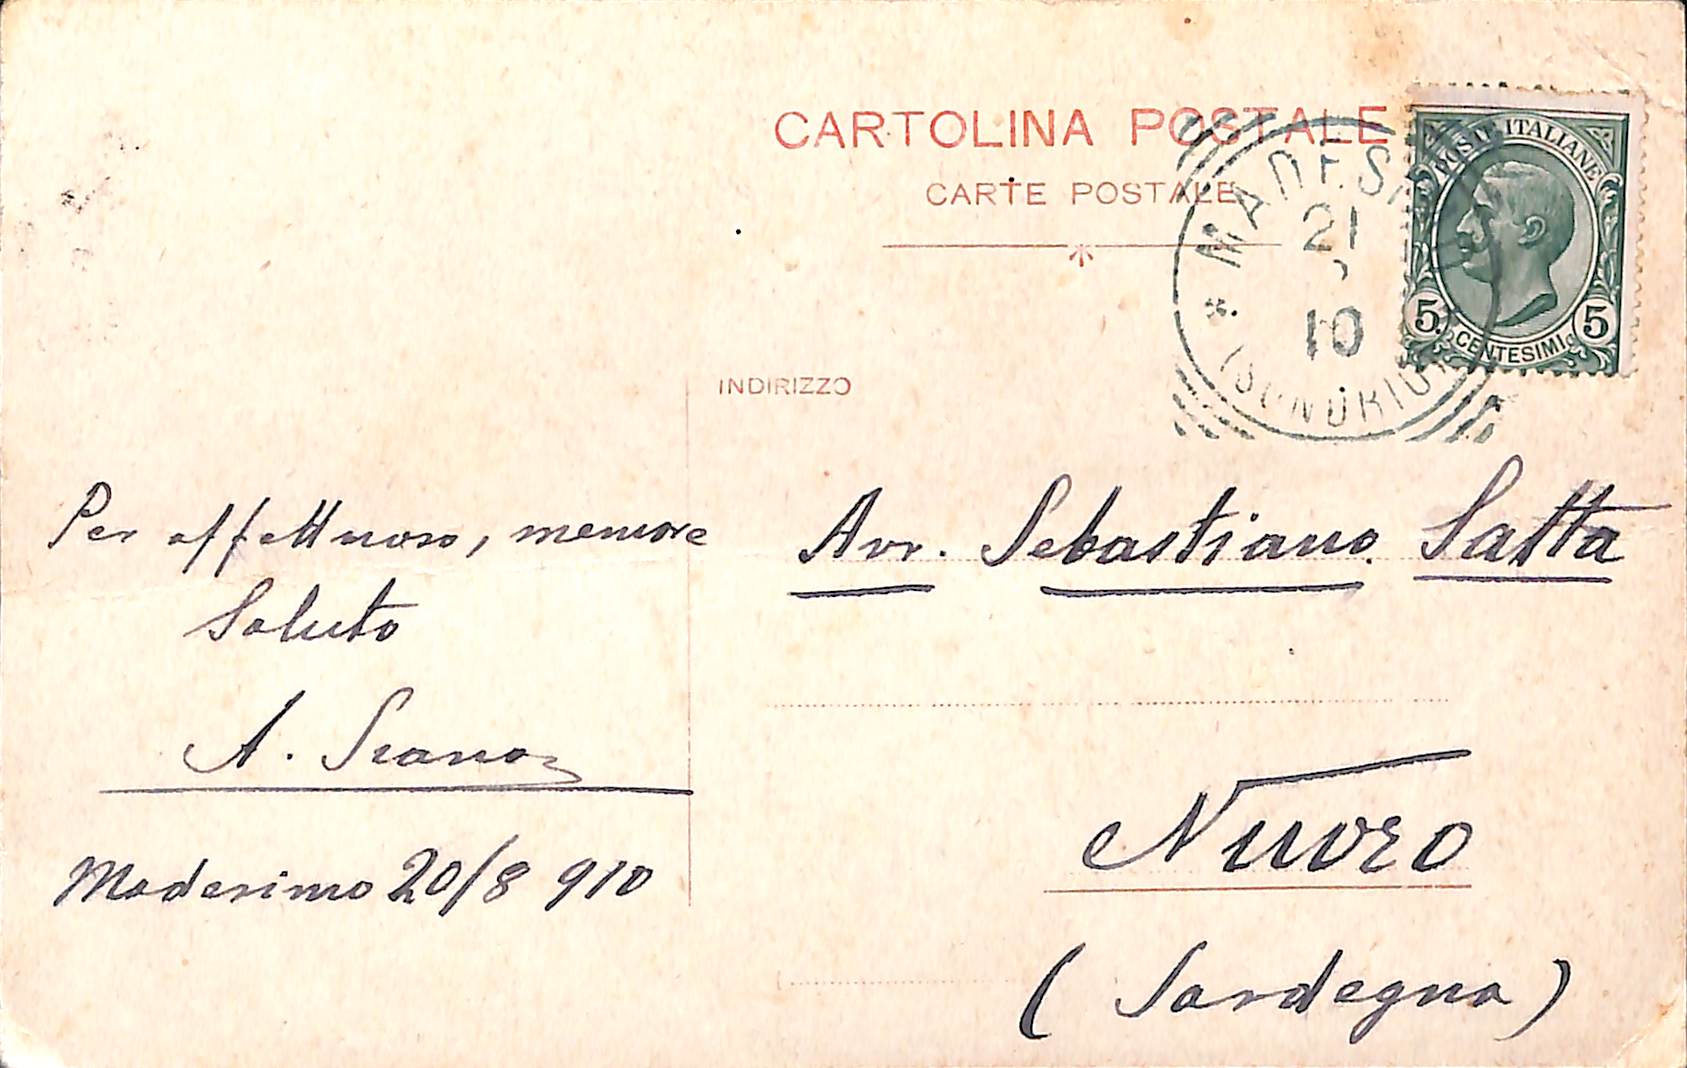 CARTOLINA POSTALE
CARTE POSTALE
POSTE ITALIANE
5 5
CENTESIMI
21
10
INDIRIZZO
Per affettuoso, memore
Saluto
A. Scano
Madesimo 20/8 910
Avv. Sebastiano Satta
Nuoro
(Sardegna)